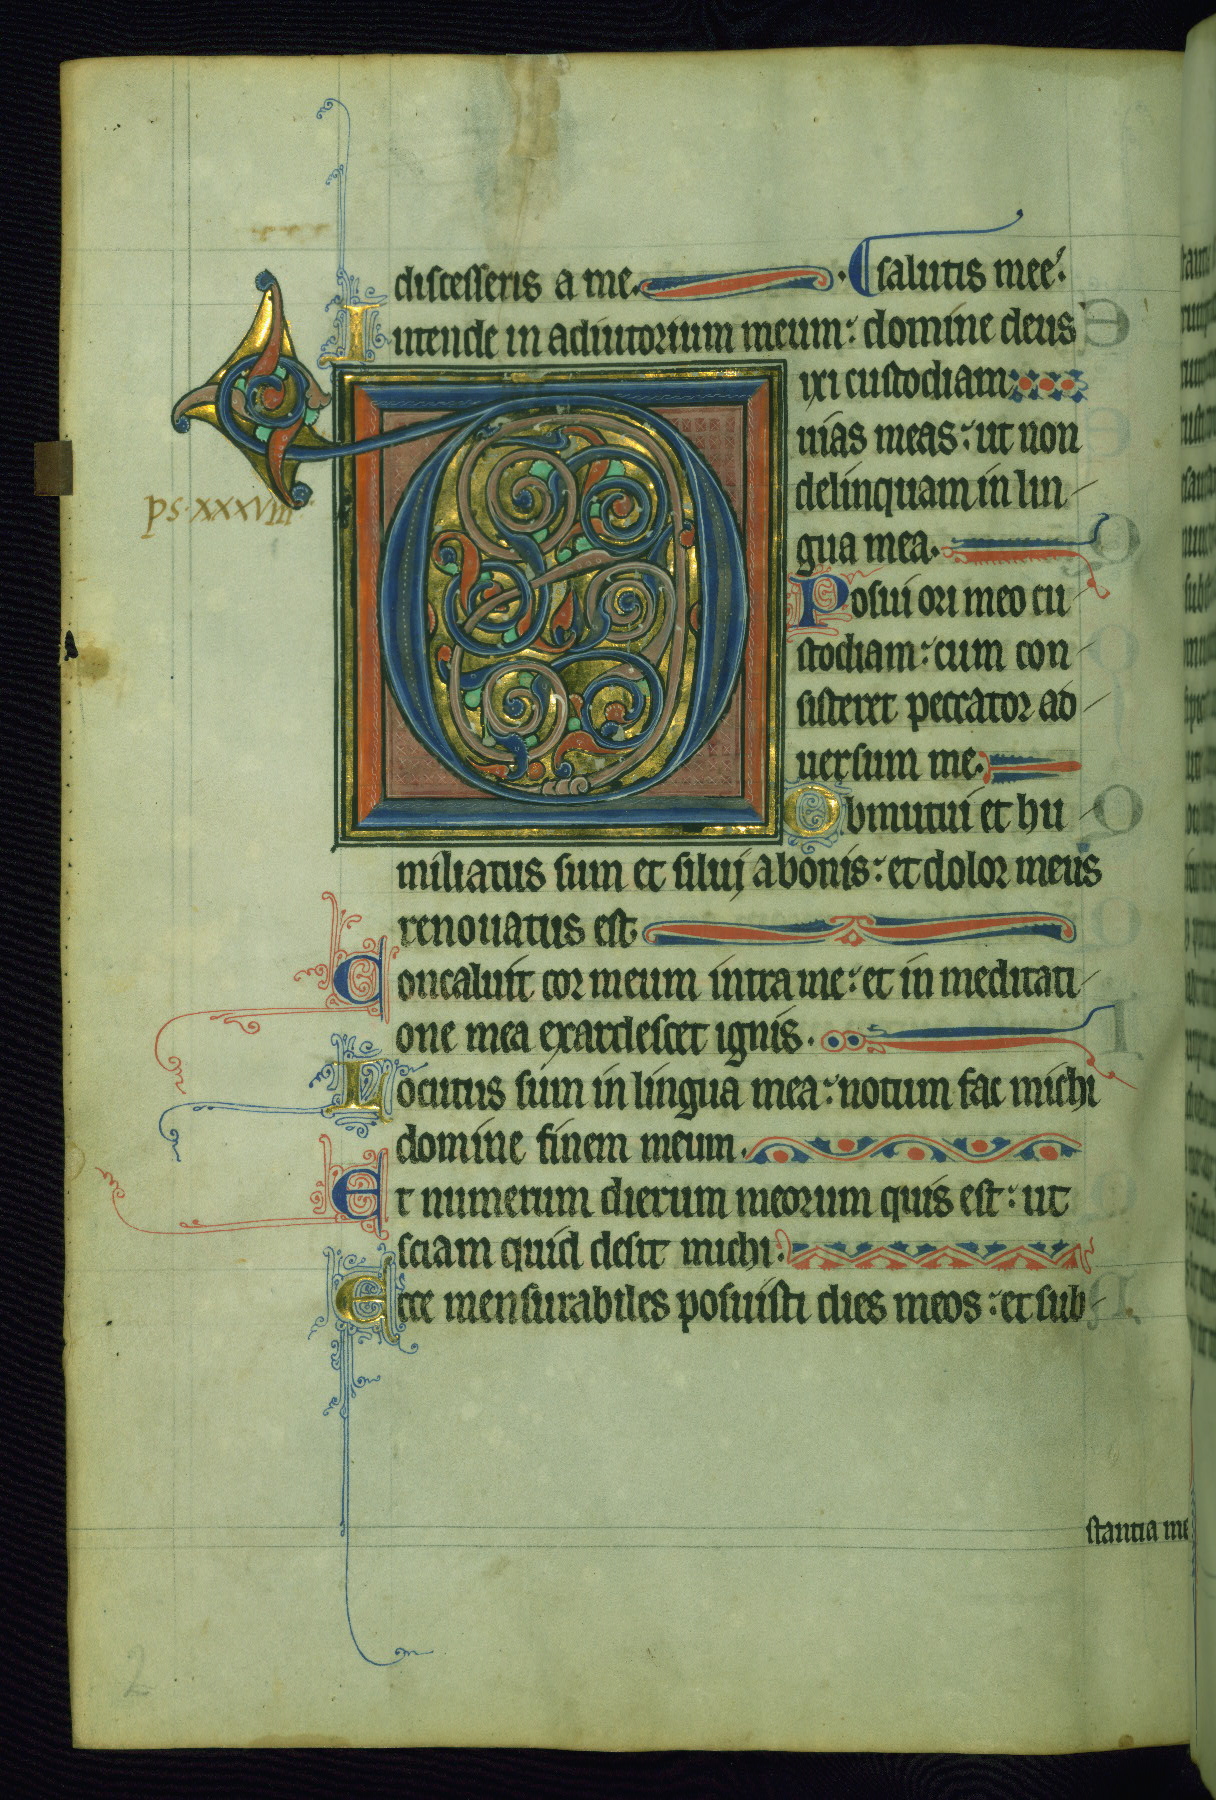 discesseris a me. salutis mee.
Intende in adiutorium meum: domine deus
Dixi custodiam
uias meas: ut non
delinquam in lin
gua mea.
ps. xxxviii
Posui ori meo cu
stodiam: cum con
sisteret peccator ad
uersum me.
Obmutui et hu
miliatus sum et silui a bonis: et dolor meus
renouatus est
Concaluit cor meum intra me: et in meditati
one mea exardescet ignis.
Locutus sum in lingua mea: notum fac michi
domine finem meum.
Et numerum dierum meorum quis est: ut
sciam quid desit michi:
Ecce mensurabiles posuisti dies meos: et sub
stantia me
2